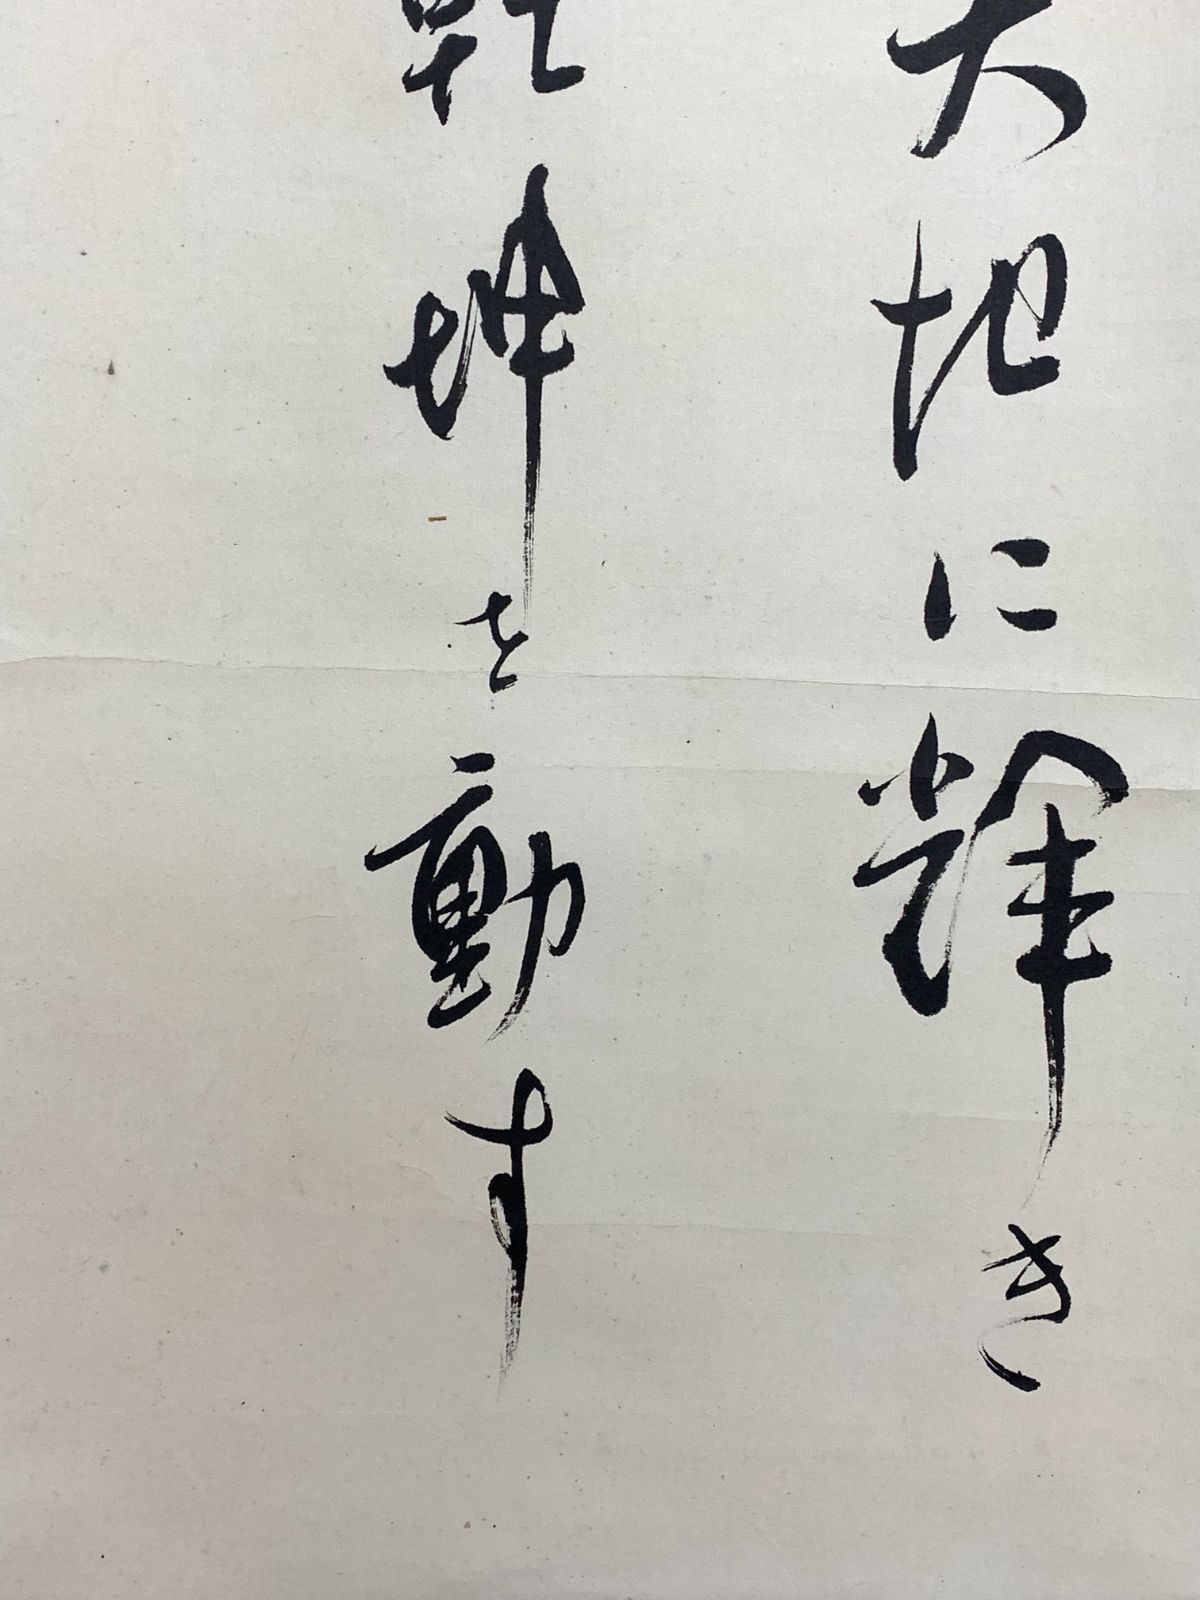 大地に輝き
乾坤を動す